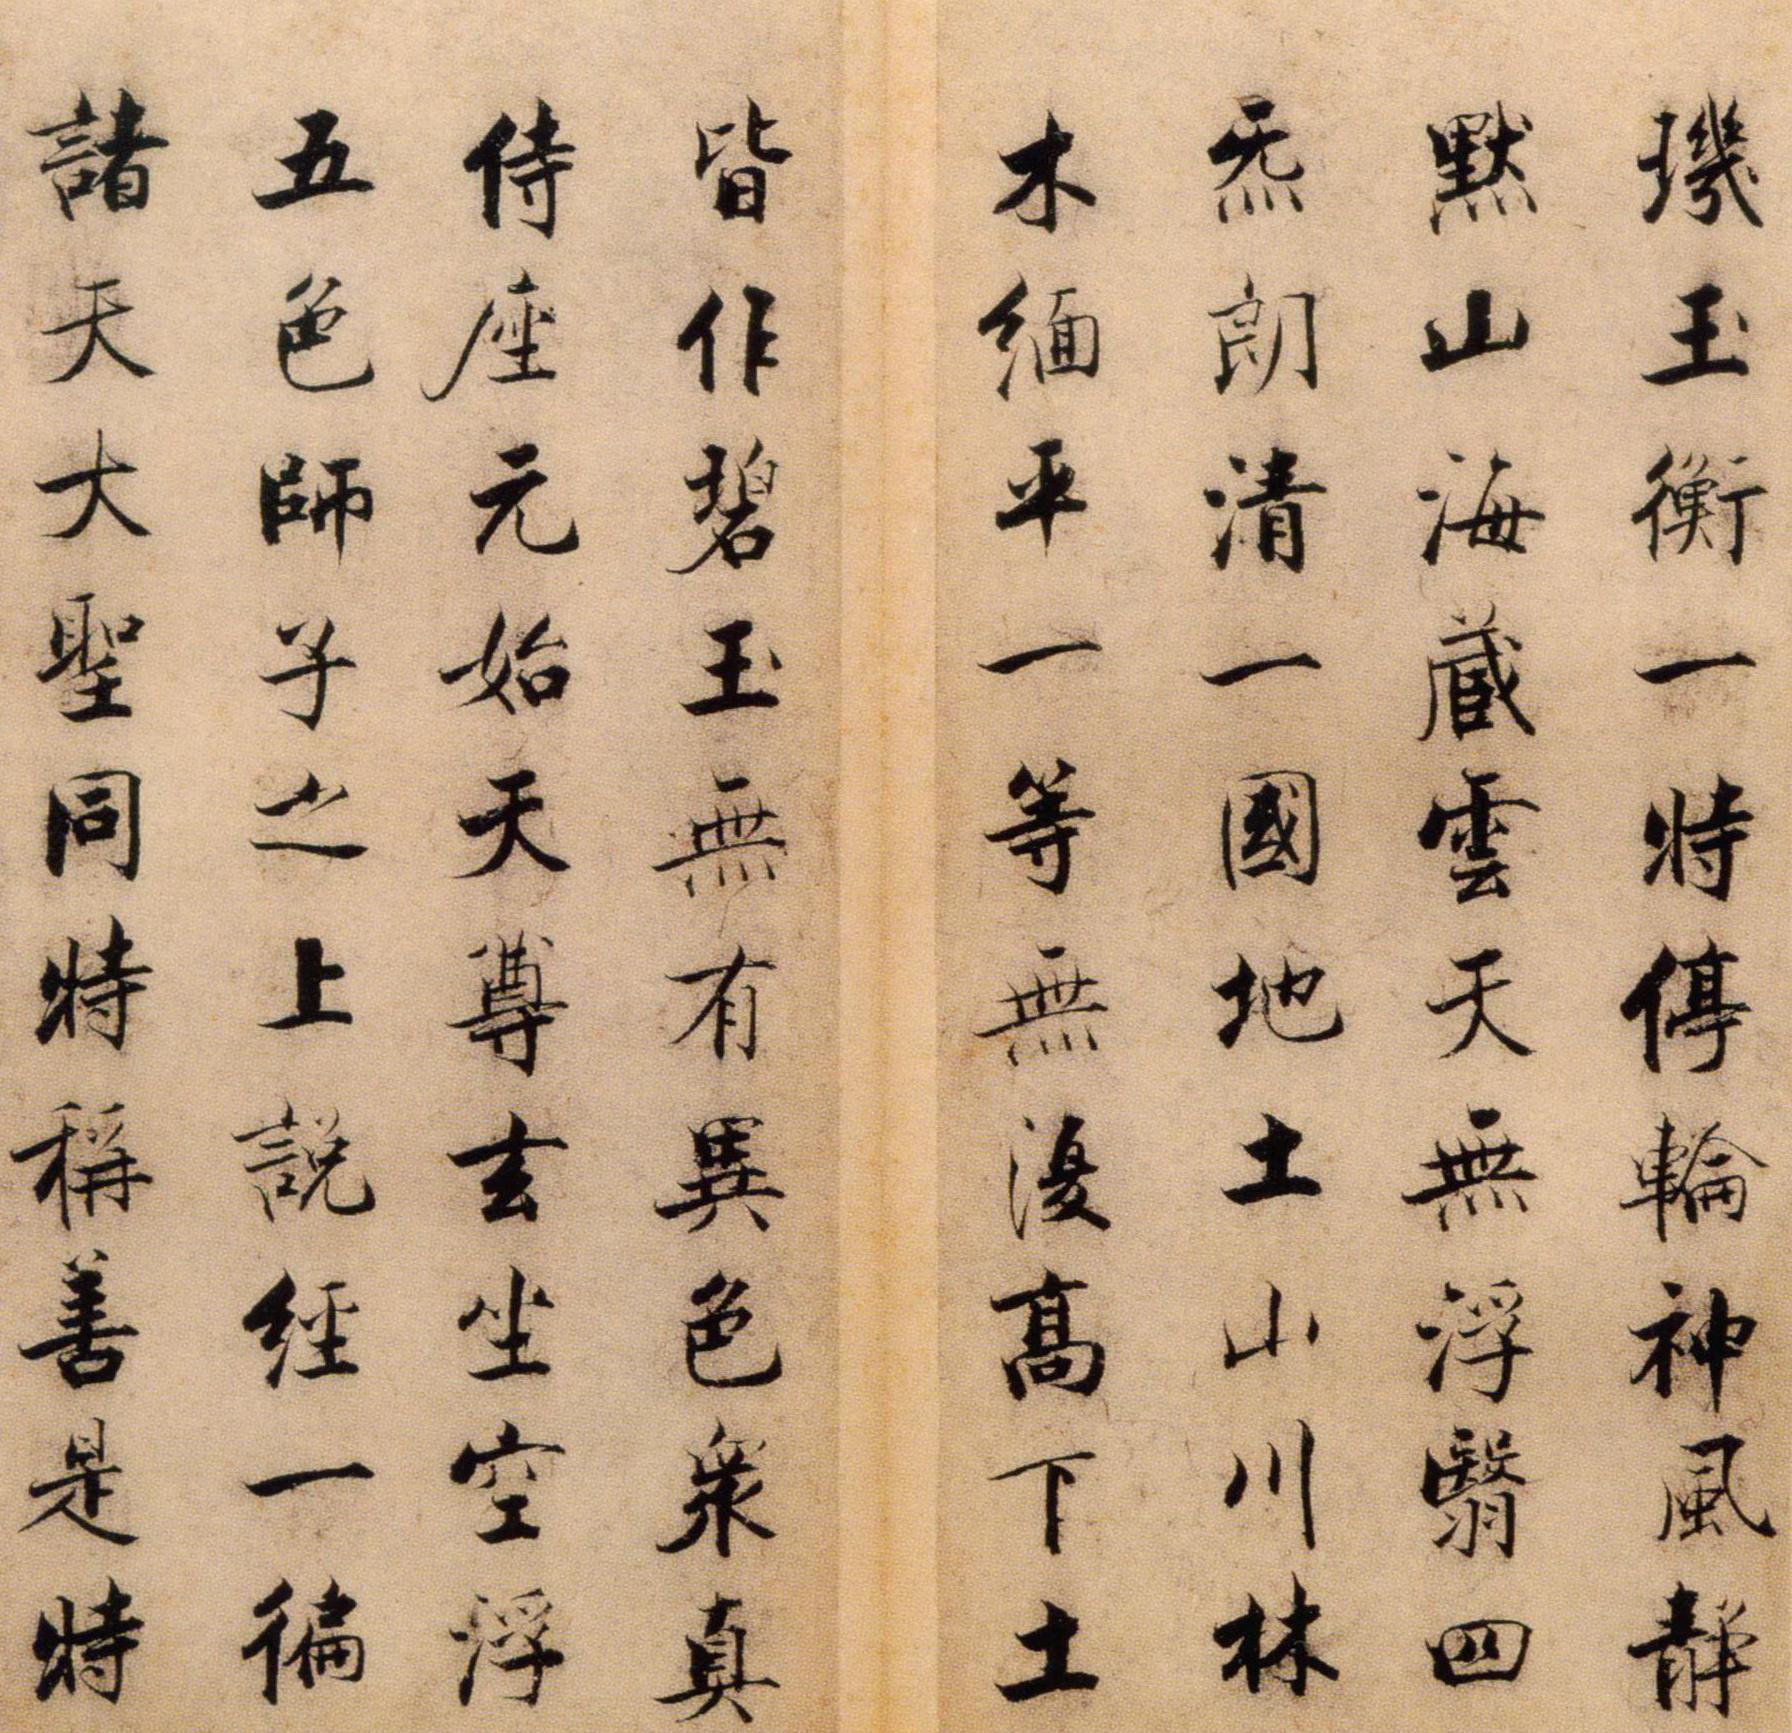 璣玉衡一時停輪神風靜
默山海蔵雲天無浮翳四
炁朗清一國地土山川林
木緬平一等無復高下土
皆作碧玉無有異色衆真
侍座元始天尊玄坐空浮
五色師子之上説經一徧
諸天大聖同時稱善是時